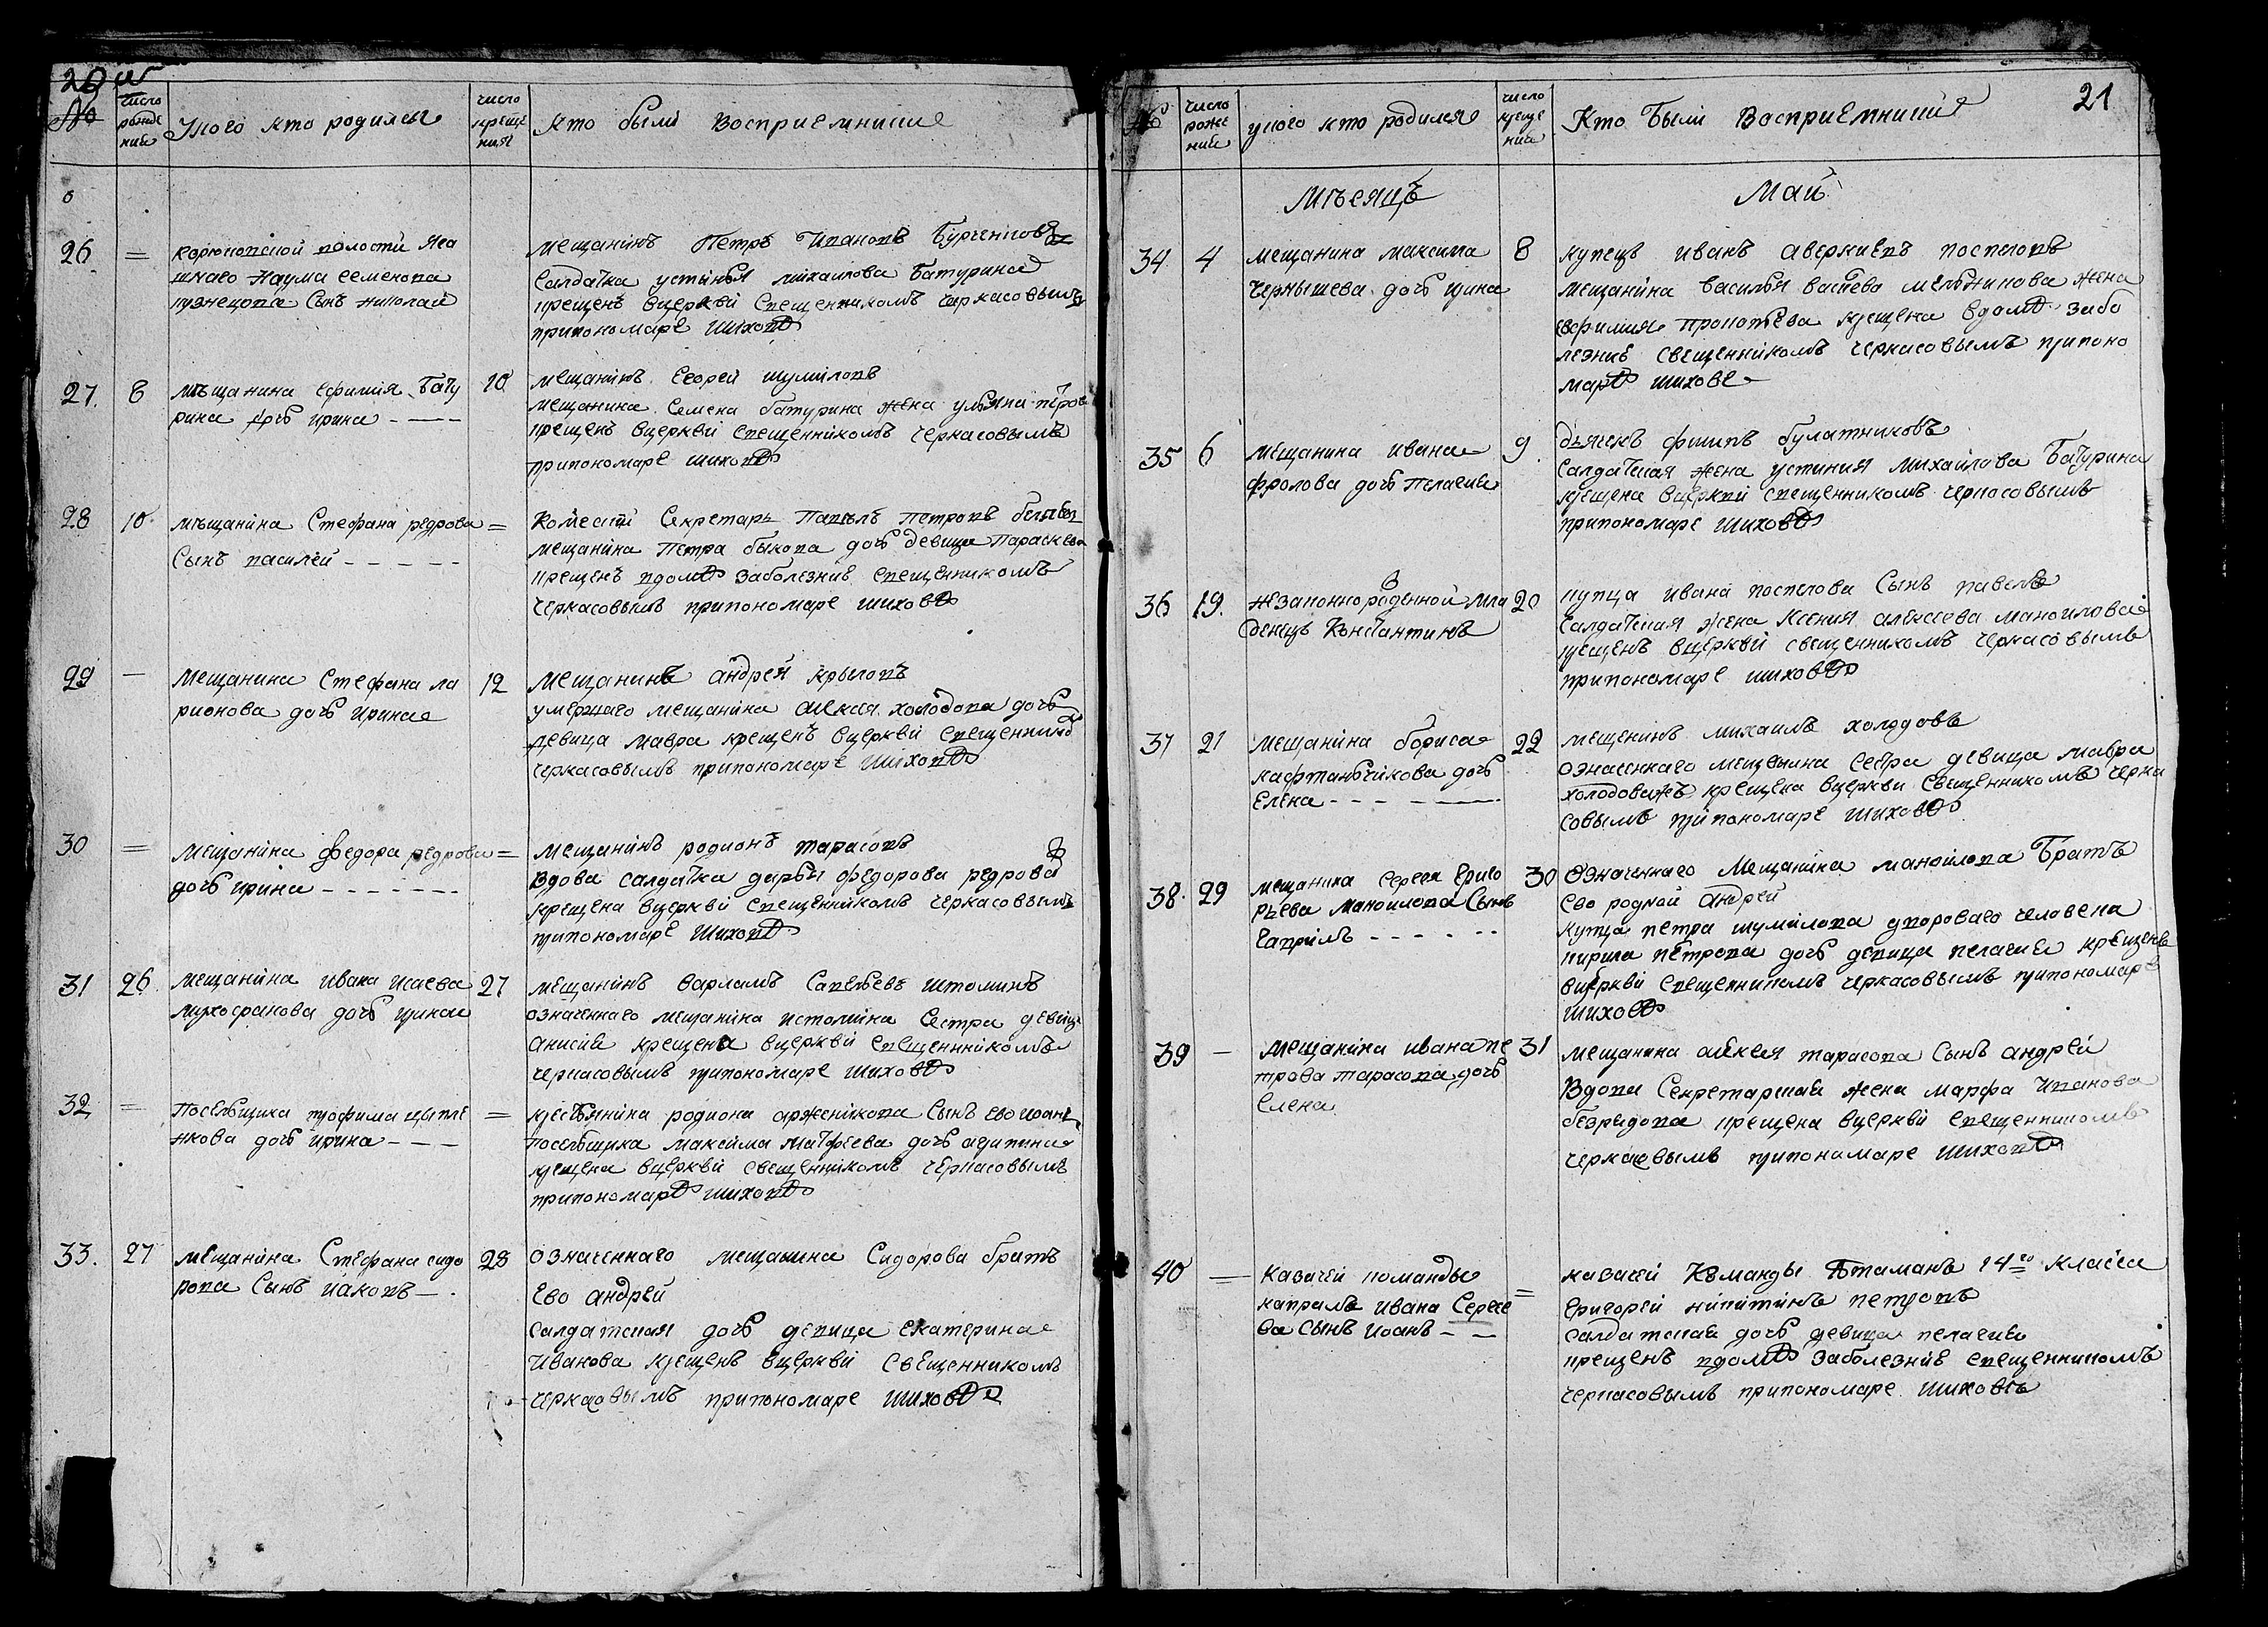 20
№
число рожде ния
У ково кто родился
число креще ния
Кто были Восприемники
26 =
Корюковской волости яса
шнаго Наума Семенова
кузнецова Сынъ николай
мещанинъ Петръ Ивановъ Бурченковъ
Салдатка устинья михаилова Батурина
крещенъ вцеркви Священникомъ черкасовымъ
припономаре шиховѣ
27. 8
мѣщанина ефимия Бату
рина дочь ирина - — —
10
мещанинъ Егорей шумиловъ
мещанина Семена батурина жена ульяна петрова
крещенъ вцеркви священникомъ черкасовымъ
припономаре шиховѣ
28 10
мѣщанина Стефана редрова =
Сынъ василей - - - - -
Комести Секретарь Павелъ Петровъ
мещанина Петра быкова дочь девица Параскева
крещенъ вдомѣ заболезние священникомъ
черкасовымъ припономаре шиховѣ
29 —
Мещанина Стефана ла
рионова дочь ирина
12
мещанинъ андрей крыловъ
умершаго мещанина алексея холодова дочь
девица мавра крещенъ вцеркви священникомъ
черкасовымъ припономаре шиховѣ
30 =
мещанина федора редрова =
дочь ирина - - - - - - -
мещанинъ родионъ тарасовъ
Вдова салдатка дарья федорова редрова
крещена вцеркви священникомъ черкасовымъ
припономаре шиховѣ
31 26
мещанина ивана исаева
дочь ирина
27
мещанинъ варламъ Савельевъ истоминъ
означеннаго мещанина истомина Сестра девица
анисия крещена вцеркви священникомъ
черкасовымъ припономаре шиховѣ
32 =
Посельщика трофима цыпле
нкова дочь ирина - — —
=
крестьянина родиона арженикова Сынъ ево иванъ
посельщика максима матфеева дочь
крещена вцеркви священникомъ черкасовымъ
припономарѣ шиховѣ
33. 27
мещанина Стефана сидо
рова Сынъ иаковъ — .
28
означеннаго мещанина Сидорова братъ
Ево андрей
Салдатская дочь девица екатерина
Иванова крещенъ вцеркви священникомъ
черкасовымъ припономаре шиховѣ
21
№
число роже ния
у ково кто родился
число креще ния
Кто Были Восприемники
Мѣсяцъ Май
34 4
мещанина максима
Чернышева дочь ирина
8
купецъ иванъ аверкиевъ поспеловъ
мещанина василья васиева мельникова жена
ефимия прокопьева крещена вдомѣ забо
лезние священникомъ черкасовымъ припоно
марѣ шихове
35 6
мещанина ивана
фролова дочь пелагия
9
дьячекъ филипъ булатниковъ
Салдатская жена устиния михаилова Батурина
крещена вцеркви священникомъ черкасовымъ
припономаре шиховѣ
36 19.
незаконнорожденной мла
денецъ Константинъ
20
купца ивана поспелова Сынъ павелъ
Салдатская жена Ксения алексеева маноилова
крещенъ вцеркви священникомъ черкасовымъ
припономаре шиховѣ
37 21
мещанина бориса
кафтанчикова дочь
Елена - - - — —
22
мещенинъ михаилъ холодовъ
означеннаго мещенина Сестра девица мавра
крещена вцеркви священникомъ черка
совымъ припономаре шиховѣ
38. 29
мещанина сергея Григо
рьева маноилова Сынъ
Гаврилъ - - - - - -
30
Означеннаго Мещанина маноилова Братъ
Ево родной андрей
купца петра шумилова двороваго человека
кирила петрова дочь девица пелагия крещенъ
вцеркви священникомъ черкасовымъ припономаре
шиховѣ
39 —
мещанина ивана пе
трова тарасова дочь
Елена
31
мещанина алексея тарасова Сынъ андрей
Вдова Секретарская жена марфа Иванова
безридова крещена вцеркви священникомъ
черкасовымъ припономаре шиховѣ
40 —
казачей команды
капралъ ивана Сергее
ва Сынъ иоанъ - —
=
казачей Команды Атаманъ 14го класса
григорей никитинъ петровъ
Салдатская дочь девица пелагия
крещенъ вдомѣ заболезние священникомъ
черкасовымъ припономаре шиховѣ